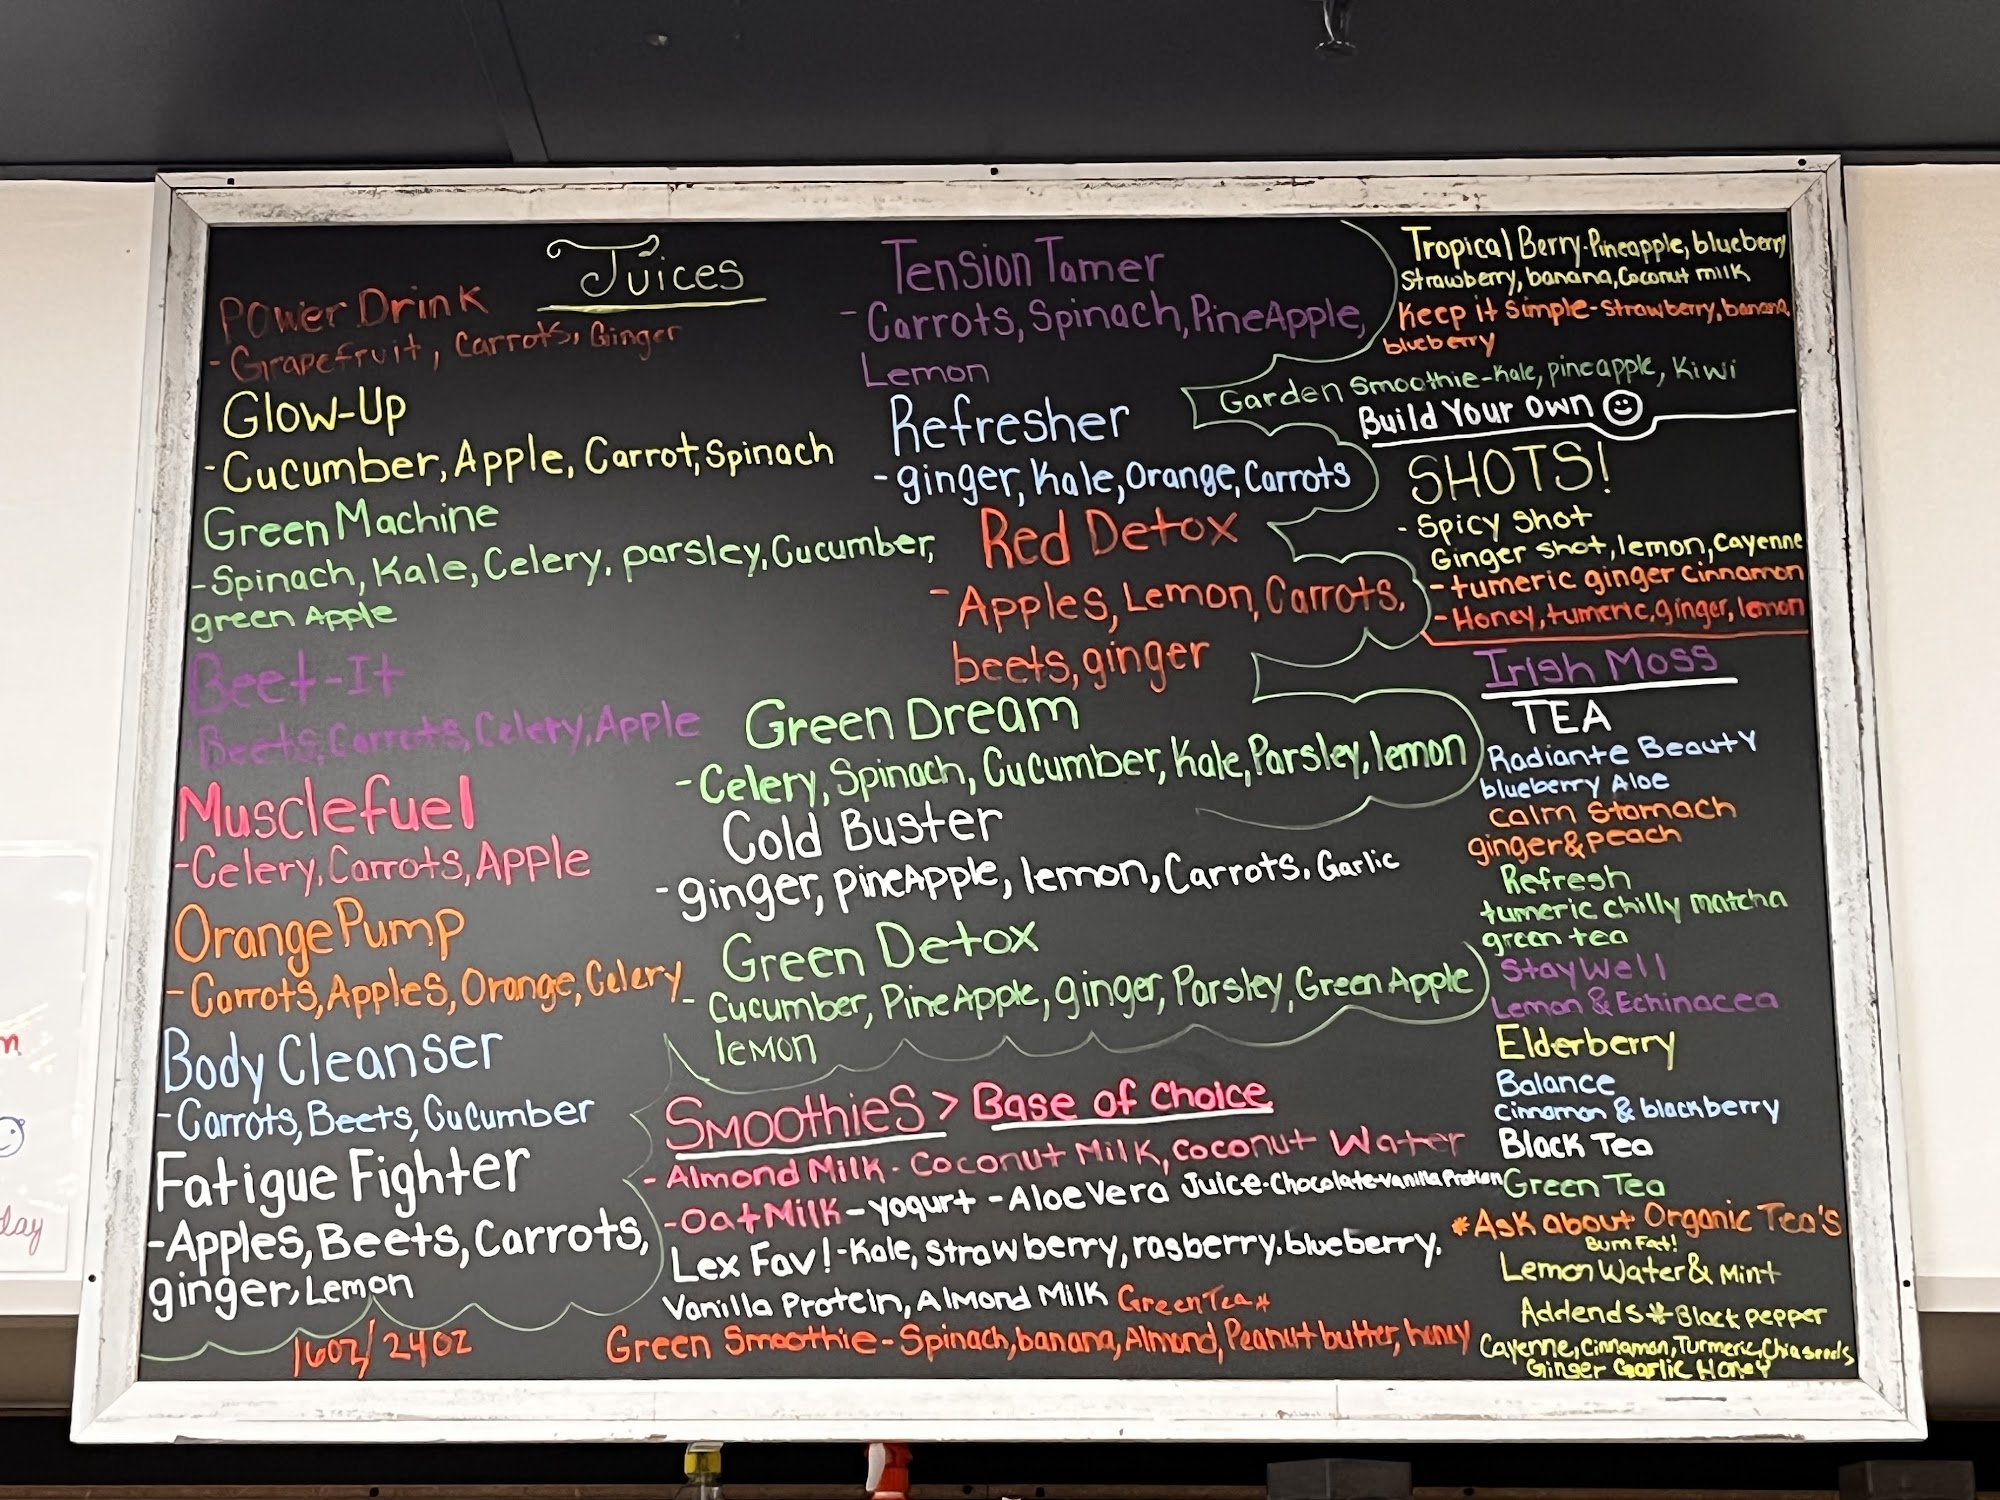 Juices
Power Drink
- Grapefruit, Carrots, Ginger
Glow-Up
- Cucumber, Apple, Carrot, Spinach
Green Machine
- Spinach, Kale, Celery, parsley, Cucumber,
green Apple
Beet-It
Beets, Carrots, Celery, Apple
Musclefuel
- Celery, Carrots, Apple
Orange Pump
- Carrots, Apples, Orange, Celery
Body Cleanser
- Carrots, Beets, Cucumber
Fatigue Fighter
- Apples, Beets, Carrots,
ginger, Lemon
16oz/24oz
Tension Tamer
- Carrots, Spinach, PineApple,
Lemon
Refresher
- ginger, Kale, Orange, Carrots
Red Detox
- Apples, Lemon, Carrots,
beets, ginger
Green Dream
- Celery, Spinach, Cucumber, Kale, Parsley, lemon
Cold Buster
- ginger, pineApple, lemon, Carrots, Garlic
Green Detox
- Cucumber, PineApple, ginger, Parsley, Green Apple
lemon
Smoothies > Base of Choice
- Almond Milk - Coconut Milk, Coconut Water
- Oat Milk - yogurt - Aloe Vera Juice - Chocolate - Vanilla Protien
Lex Fav! - Kale, Strawberry, rasberry, blueberry,
Vanilla Protein, Almond Milk Green Tea *
Green Smoothie - Spinach, banana, Almond, Peanut butter, honey
Tropical Berry - Pineapple, blueberry
Strawberry, banana, Coconut milk
Keep it Simple - Strawberry, banana,
blueberry
Garden Smoothie - Kale, pineapple, Kiwi
Build Your Own
SHOTS!
- Spicy Shot
Ginger shot, lemon, Cayenne
- tumeric ginger cinnamon
- Honey, tumeric, ginger, lemon
Irish Moss
TEA
Radiante Beauty
blueberry Aloe
Calm Stomach
ginger & peach
Refresh
tumeric chilly matcha
green tea
Stay Well
Lemon & Echinacea
Elderberry
Balance
cinnamon & blackberry
Black Tea
Green Tea
* Ask about Organic Tea's
Burn Fat!
Lemon Water & Mint
Addends * Black pepper
Cayenne, Cinnamon, Turmeric, Chia seeds
Ginger Garlic Honey
day